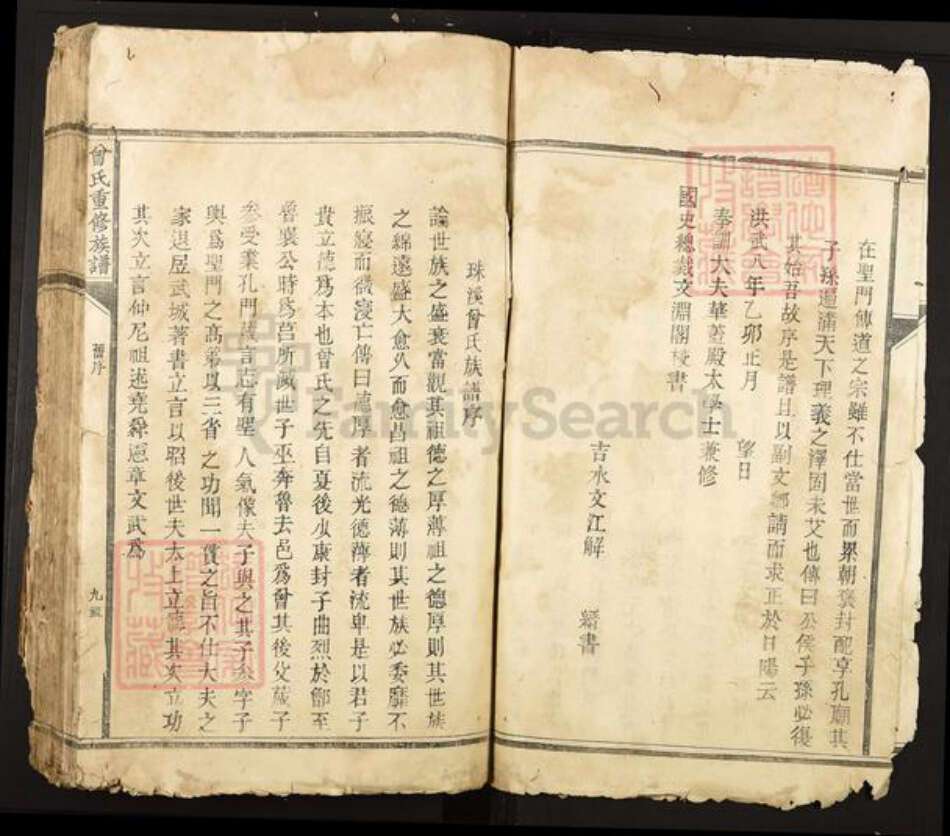 在聖門傳道之宗雖不仕當世而累朝褒封配享孔廟其
子孫遍滿天下理義之澤固未艾也傳曰公侯子孫必復
其始吾故序是譜且以副文鄉請而求正於日陽云
洪武八年乙卯正月 望日
奉訓大夫華葢殿大學士兼修
國史總裁文淵閣 書
吉水文江解 縉書
珠溪曾氏族譜序
論世族之盛衰當觀其祖德之厚薄祖之德厚則其世族
之綿遠盛大愈久而愈昌祖之德薄則其世族必委靡不
振寢而微寖亡傳曰德厚者流光德薄者流卑是以君子
貴立德爲本也曾氏之先自夏後少康封子曲烈於鄫至
魯襄公時爲莒所滅世子巫奔魯去邑爲曾其後父葴子
參受業孔門葴言志有聖人氣像夫子與之其子參字子
輿爲聖門之高弟以三省之功聞一貫之旨不仕大夫之
家退居武城著書立言以昭後世夫太上立德其次立功
其次立言仲尼祖述堯舜憲章文武爲
曾氏重修族譜
舊序
九
FamilySearch